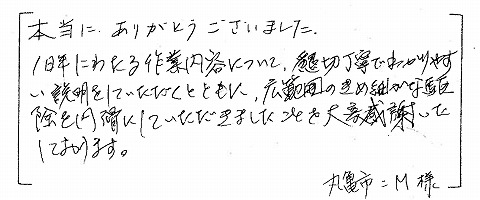 本当に、ありがとうございました。
1日半にわたる作業内容について、懇切丁寧でわかりやす
い説明をしていただくとともに、広範囲のきめ細かな駆
除を円滑にしていただきましたことを大変感謝いた
しております。
丸亀市:M様